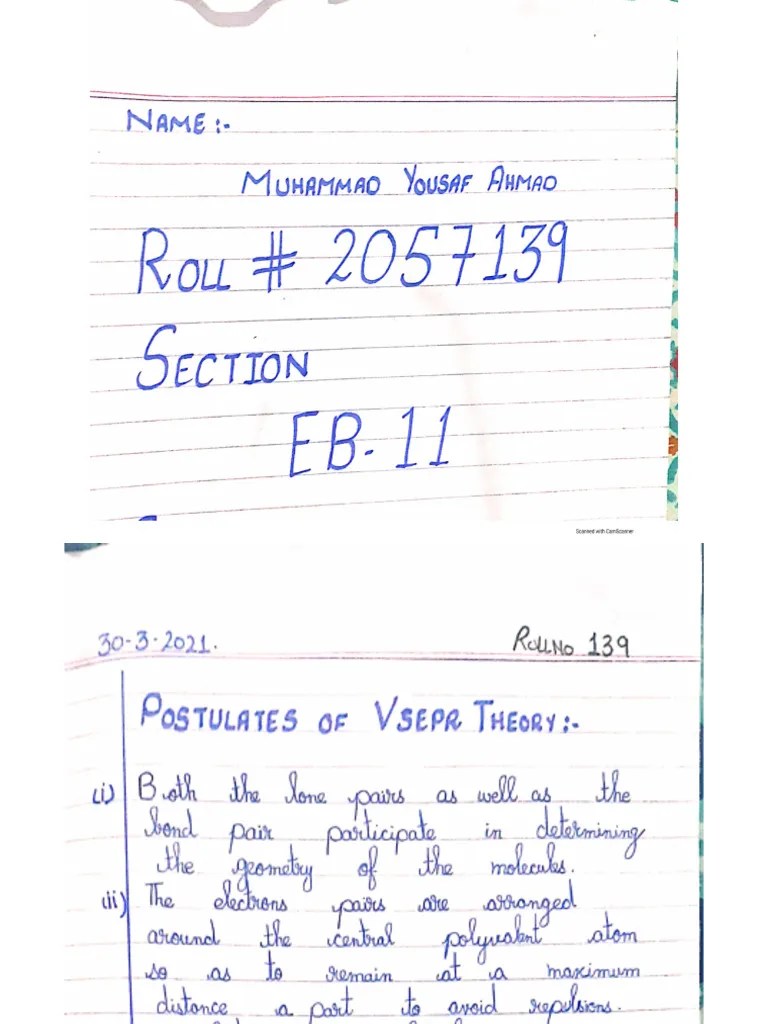 NAME :-
MUHAMMAD YOUSAF AHMAD
ROLL # 2057139
SECTION
EB-11
Scanned with CamScanner
30-3-2021.
ROLLNO 139
POSTULATES OF VSEPR THEORY:-
(i) Both the lone pairs as well as the
bond pair participate in determining
the geometry of the molecules.
(ii) The electrons pairs are arranged
around the central polyvalent atom
so as to remain at a maximum
distance a part to avoid repulsions.